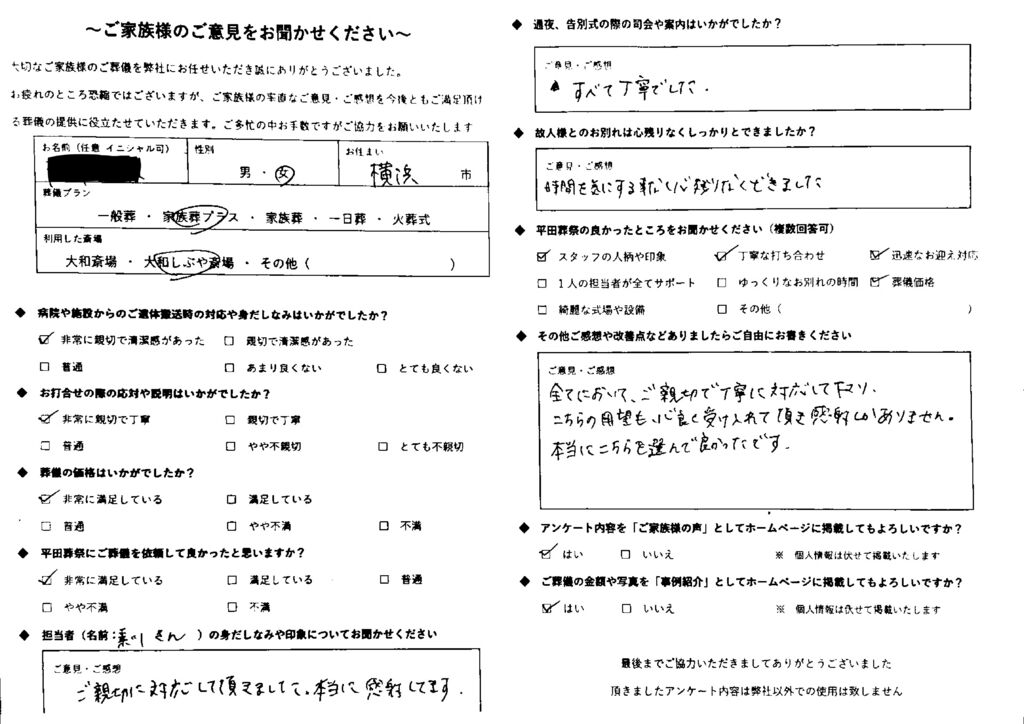 ～ご家族様のご意見をお聞かせください～
大切なご家族様のご葬儀を弊社にお任せいただき誠にありがとうございました。
お疲れのところ恐縮ではございますが、ご家族様の率直なご意見・ご感想を今後ともご満足頂け
る葬儀の提供に役立たせていただきます。ご多忙の中お手数ですがご協力をお願いいたします
お名前（任意 イニシャル可） 性別 お住まい
男・女 横浜 市
葬儀プラン
一般葬・家族葬プラス・家族葬・一日葬・火葬式
利用した斎場
大和斎場・大和しぶや斎場・その他（ ）
◆ 病院や施設からのご遺体搬送時の対応や身だしなみはいかがでしたか？
☑ 非常に親切で清潔感があった □ 親切で清潔感があった
□ 普通 □ あまり良くない □ とても良くない
◆ お打合せの際の応対や説明はいかがでしたか？
☑ 非常に親切で丁寧 □ 親切で丁寧
□ 普通 □ やや不親切 □ とても不親切
◆ 葬儀の価格はいかがでしたか？
☑ 非常に満足している □ 満足している
□ 普通 □ やや不満 □ 不満
◆ 平田葬祭にご葬儀を依頼して良かったと思いますか？
☑ 非常に満足している □ 満足している □ 普通
□ やや不満 □ 不満
◆ 担当者（名前：さん ）の身だしなみや印象についてお聞かせください
ご意見・ご感想
ご親切に対応して頂きました。本当に感謝してます．
◆ 通夜、告別式の際の司会や案内はいかがでしたか？
ご意見・ご感想
すべて丁寧でした．
◆ 故人様とのお別れは心残りなくしっかりとできましたか？
ご意見・ご感想
時間を気にする事なく心残りなくできました
◆ 平田葬祭の良かったところをお聞かせください（複数回答可）
☑ スタッフの人柄や印象 ☑ 丁寧な打ち合わせ ☑ 迅速なお迎え対応
□ 1人の担当者が全てサポート □ ゆっくりなお別れの時間 ☑ 葬儀価格
□ 綺麗な式場や設備 □ その他（ ）
◆ その他ご感想や改善点などありましたらご自由にお書きください
ご意見・ご感想
全てにおいて、ご親切で丁寧に対応して下さり、
こちらの用望も心良く受け入れて頂き感謝しかありません。
本当にこちらを選んで良かったです．
◆ アンケート内容を「ご家族様の声」としてホームページに掲載してもよろしいですか？
☑ はい □ いいえ ※ 個人情報は伏せて掲載いたします
◆ ご葬儀の金額や写真を「事例紹介」としてホームページに掲載してもよろしいですか？
☑ はい □ いいえ ※ 個人情報は伏せて掲載いたします
最後までご協力いただきましてありがとうございました
頂きましたアンケート内容は弊社以外での使用は致しません